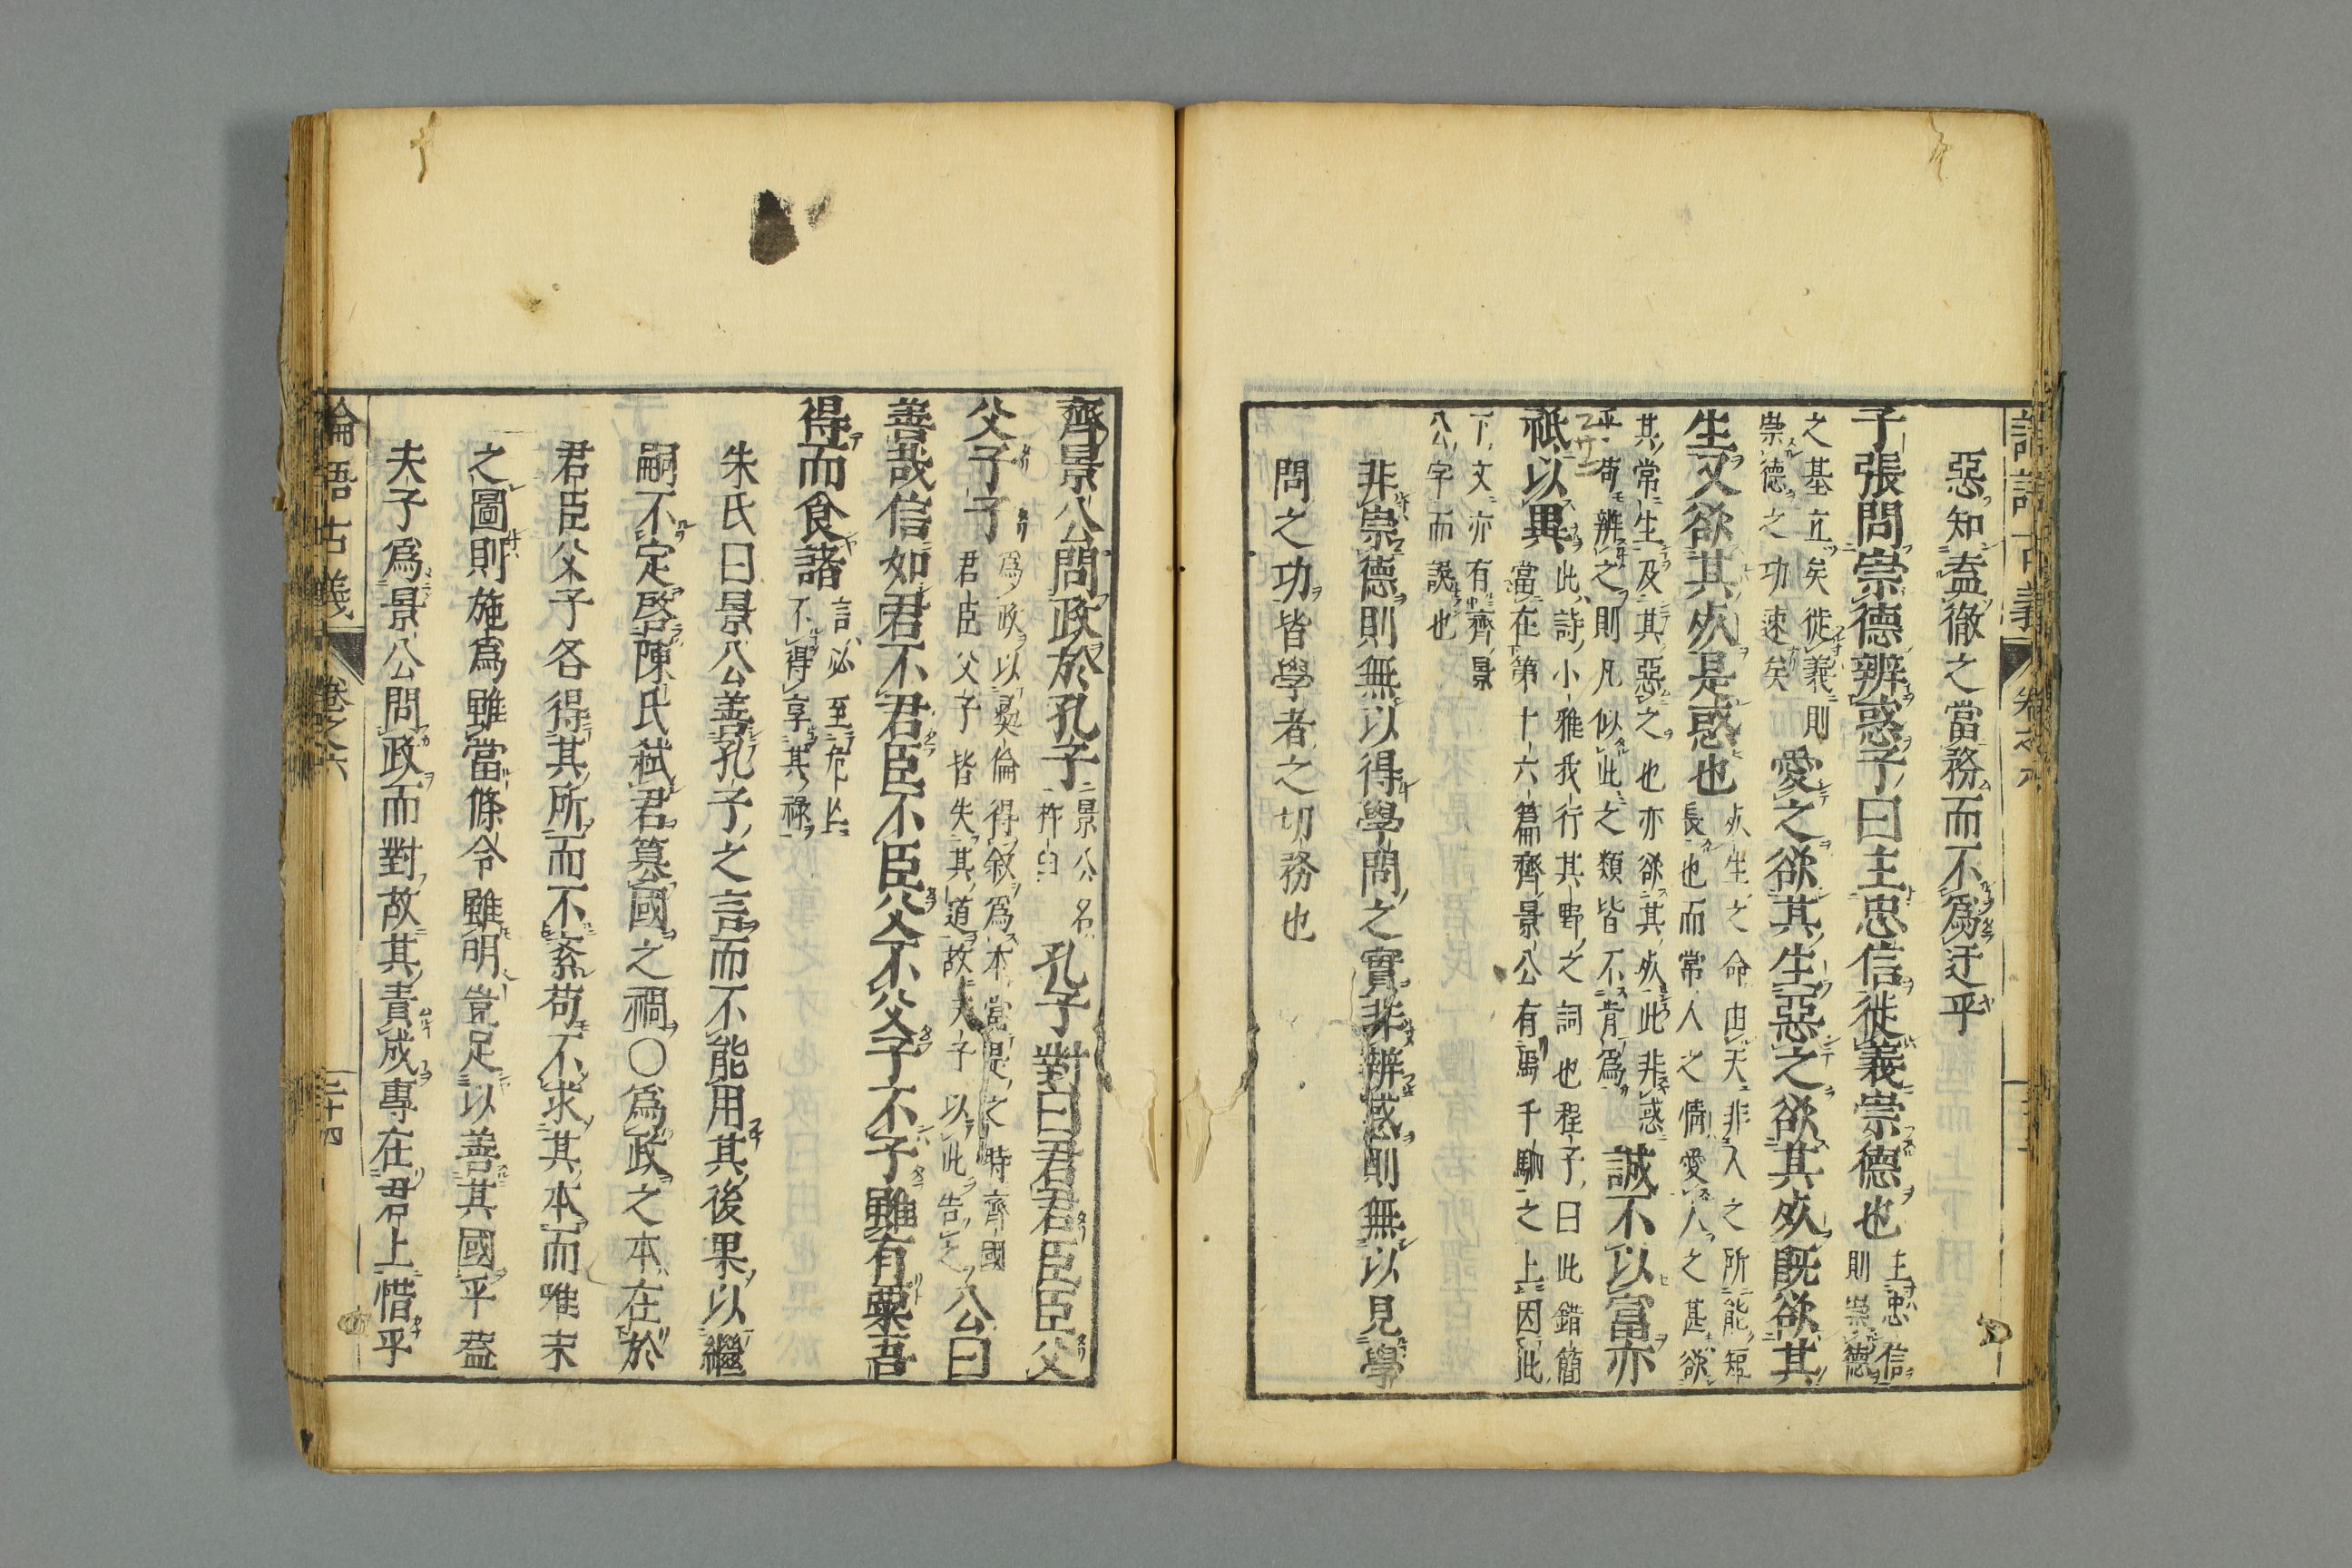 惡知盍徹之當務而不爲迂乎
子張問崇德辨惑子曰主忠信徙義崇德也 主忠信則崇德
之基立矣徙義則崇德之功速矣 愛之欲其生惡之欲其死既欲其
生又欲其死是惑也 死生之命由天非人之所能短長也而常人之情愛人之甚欲
其常生及其惡之也亦欲其死此非惑乎苟辨之則凡似此之類皆不肯爲 誠不以富亦
祇以異 此詩小雅我行其野之詞也程子曰此錯簡當在第十六篇齊景公有馬千駟之上因此
下文亦有齊景公字而誤也
非崇德則無以得學問之實非辨惑則無以見學
問之功皆學者之切務也
齊景公問政於孔子 景公名杵臼 孔子對曰君君臣臣父
父子子 爲政以彝倫得敘爲本當是之時齊國君臣父子皆失其道故夫子以此告之 公曰
善哉信如君不君臣不臣父不父子不子雖有粟吾
得而食諸 言必至危亡不得享其祿
朱氏曰景公善孔子之言而不能用其後果以繼
嗣不定啓陳氏弑君簒國之禍〇爲政之本在於
君臣父子各得其所而不紊苟不求其本而唯末
之圖則施爲雖當條令雖明豈足以善其國乎蓋
夫子爲景公問政而對故其責成專在君上惜乎
論語古義 卷之六 三十四